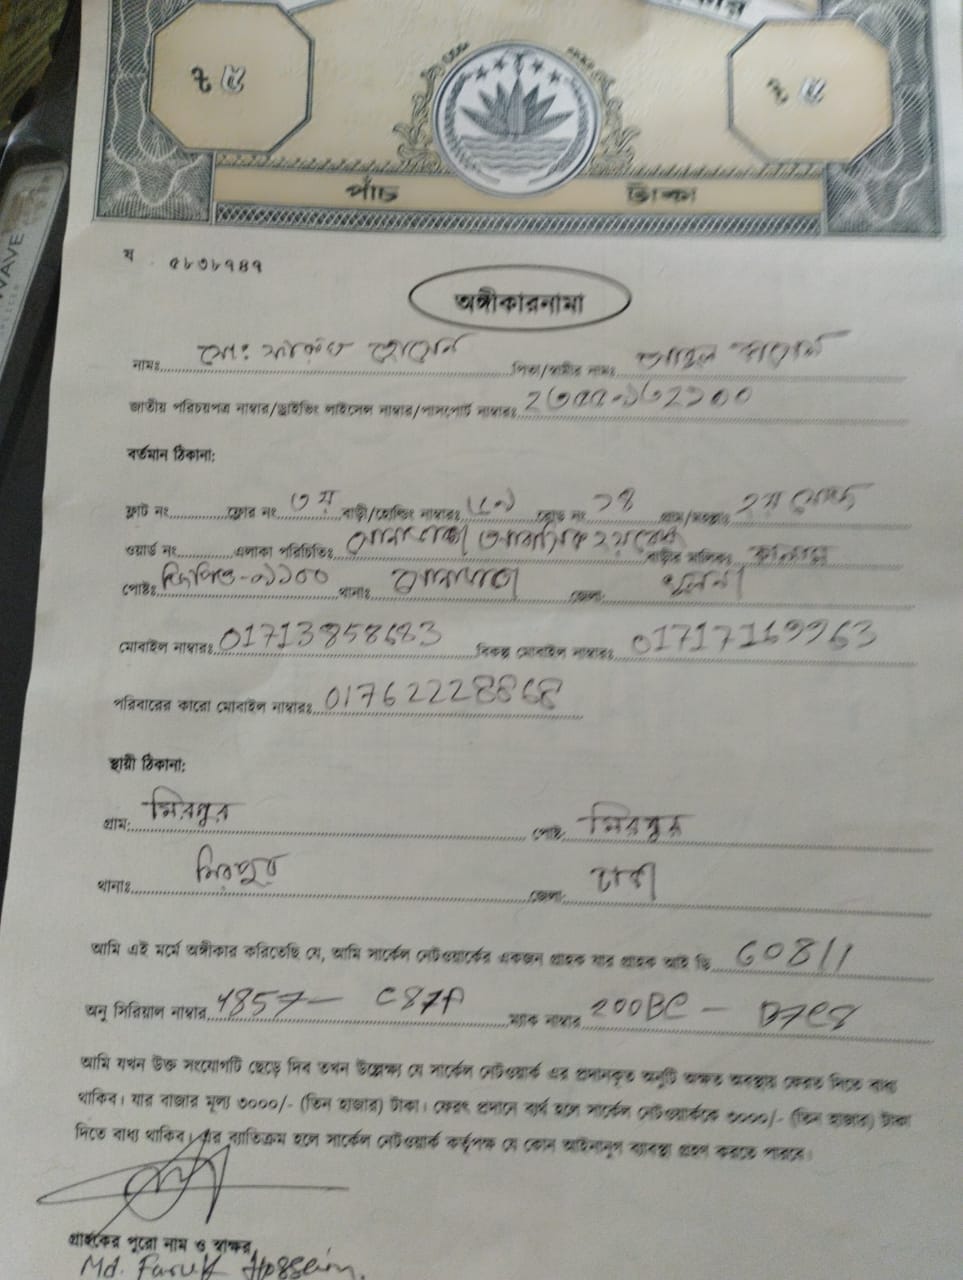 ৳ ৫
৳ ৫
পাঁচ টাকা
য ৫৮৩৮৭৪৭
অঙ্গীকারনামা
নামঃ মোঃ ফারুক হোসেন পিতা/স্বামীর নামঃ
জাতীয় পরিচয়পত্র নাম্বার/ড্রাইভিং লাইসেন্স নাম্বার/পাসপোর্ট নাম্বারঃ
বর্তমান ঠিকানা:
ফ্লাট নং ফ্লোর নং ৩য় বাড়ী/হোল্ডিং নাম্বারঃ রোড নং ১৪ গ্রাম/মহল্লাঃ ২য় ফেজ
ওয়ার্ড নং এলাকা পরিচিতিঃ সোনাডাঙ্গা আবাসিক ২য় ফেজ বাড়ীর মালিকঃ
পোষ্টঃ জিপিও-৯১০০ থানাঃ সোনাডাঙ্গা জেলা: খুলনা
মোবাইল নাম্বারঃ 01713858683 বিকল্প মোবাইল নাম্বারঃ 01717169963
পরিবারের কারো মোবাইল নাম্বারঃ 01762228868
স্থায়ী ঠিকানা:
গ্রাম: মিরপুর পোষ্ট: মিরপুর
থানাঃ মিরপুর জেলা: ঢাকা
আমি এই মর্মে অঙ্গীকার করিতেছি যে, আমি সার্কেল নেটওয়ার্কের একজন গ্রাহক যার গ্রাহক আই ডি 60811
অনু সিরিয়াল নাম্বার 4857- C87A ম্যাক নাম্বার 200BC - D7C8
আমি যখন উক্ত সংযোগটি ছেড়ে দিব তখন উল্লেক্ষ্য যে সার্কেল নেটওয়ার্ক এর প্রদানকৃত অনুটি অক্ষত অবস্থায় ফেরত দিতে বাধ্য
থাকিব। যার বাজার মূল্য ৩০০০/- (তিন হাজার) টাকা। ফেরৎ প্রদানে ব্যর্থ হলে সার্কেল নেটওয়ার্ককে ৩০০০/- (তিন হাজার) টাকা
দিতে বাধ্য থাকিব। এর ব্যতিক্রম হলে সার্কেল নেটওয়ার্ক কর্তৃপক্ষ যে কোন আইনানুগ ব্যবস্থা গ্রহণ করতে পারবে।
গ্রাহকের পুরো নাম ও স্বাক্ষর
Md. Faruk Hossain.